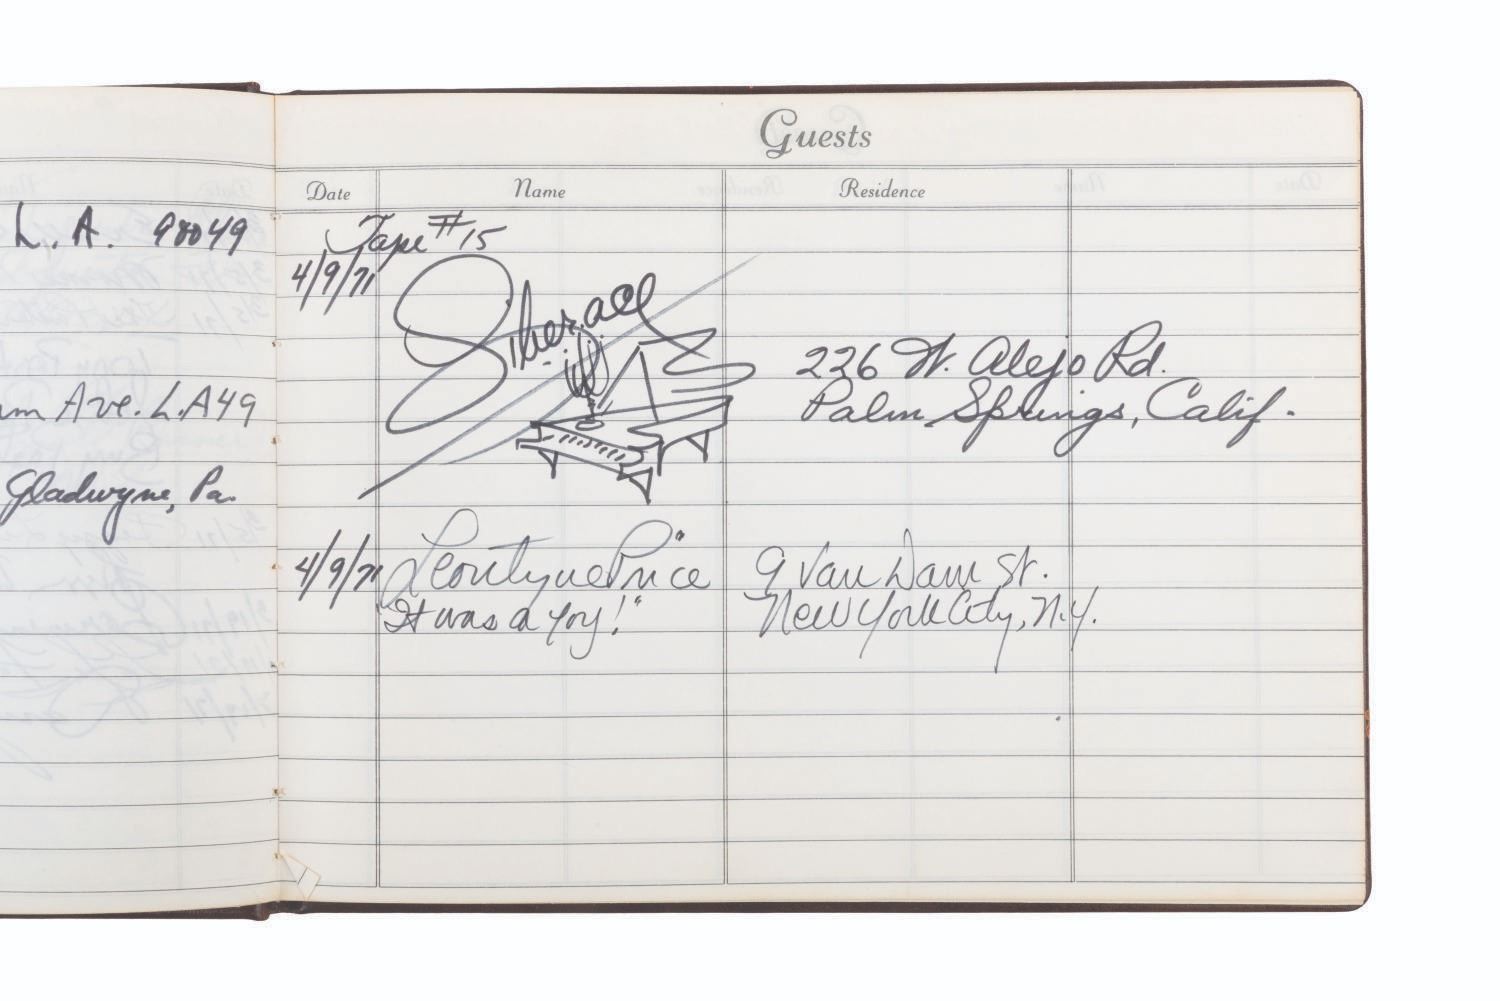 Guests
Date Name Residence
L. A. 90049
Tape #15
4/9/71 Liberace
226 W. Alejo Rd.
Palm Springs, Calif.
Ave. L.A 49
Gladwyne, Pa.
4/9/71 Leontyne Price 9 Van Dam St.
"It was a joy!" New York City, N.Y.